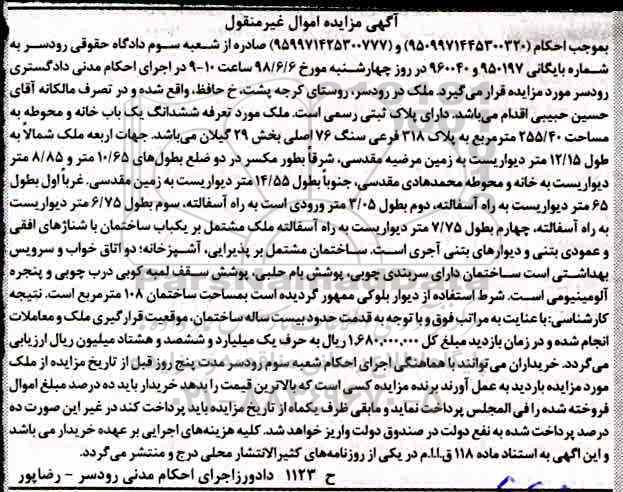 آگهی مزایده اموال غیرمنقول
بموجب احکام (۹۵۰۹۹۷۱۴۴۵۳۰۰۳۲۰) و (۹۵۹۹۷۱۴۲۵۳۰۰۷۷۷) صادره از شعبه سوم دادگاه حقوقی رودسر به
شماره بایگانی ۹۵۰۱۹۷ و ۹۶۰۰۴۰ در روز چهارشنبه مورخ ۹۸/۶/۶ ساعت ۱۰-۹ در اجرای احکام مدنی دادگستری
رودسر مورد مزایده قرار می‌گیرد. ملک در رودسر، روستای کرجه پشت، خ حافظ، واقع شده و در تصرف مالکانه آقای
حسین حبیبی اقدام می‌باشد. دارای پلاک ثبتی رسمی است. ملک مورد تعرفه ششدانگ یک باب خانه و محوطه به
مساحت ۲۵۵/۴۰ مترمربع به پلاک ۳۱۸ فرعی سنگ ۷۶ اصلی بخش ۲۹ گیلان می‌باشد. جهات اربعه ملک شمالاً به
طول ۱۲/۱۵ متر دیواریست به زمین مرضیه مقدسی، شرقاً بطور مکسر در دو ضلع بطول‌های ۱۰/۶۵ متر و ۸/۸۵ متر
دیواریست به خانه و محوطه محمدهادی مقدسی، جنوباً بطول ۱۴/۵۵ متر دیواریست به زمین مقدسی. غرباً اول بطول
۶۵ متر دیواریست به راه آسفالته، دوم بطول ۳/۰۵ متر ورودی است به راه آسفالته، سوم بطول ۶/۷۵ متر دیواریست
به راه آسفالته، چهارم بطول ۷/۷۵ متر دیواریست به راه آسفالته ملک مشتمل بر یکباب ساختمان با شناژهای افقی
و عمودی بتنی و دیوارهای بتنی آجری است. ساختمان مشتمل بر پذیرایی، آشپزخانه؛ دو اتاق خواب و سرویس
بهداشتی است ساختمان دارای سربندی چوبی، پوشش بام حلبی، پوشش سقف لمبه کوبی درب چوبی و پنجره
آلومینیومی است. شرط استفاده از دیوار بلوکی ممهور گردیده است بمساحت ساختمان ۱۰۸ مترمربع است. نتیجه
کارشناسی: با عنایت به مراتب فوق و با توجه به قدمت حدود بیست ساله ساختمان، موقعیت قرارگیری ملک و معاملات
انجام شده و در زمان بازدید مبلغ کل ۱,۶۸۰,۰۰۰,۰۰۰ ریال به حرف یک میلیارد و ششصد و هشتاد میلیون ریال ارزیابی
می‌گردد. خریداران می‌توانند با هماهنگی اجرای احکام شعبه سوم رودسر مدت پنج روز قبل از تاریخ مزایده از ملک
مورد مزایده بازدید به عمل آورند برنده مزایده کسی است که بالاترین قیمت را بدهد خریدار باید ده درصد مبلغ اموال
فروخته شده را فی المجلس پرداخت نماید و مابقی ظرف یکماه از تاریخ مزایده باید پرداخت کند در غیر این صورت ده
درصد پرداخت شده به نفع دولت در صندوق دولت واریز خواهد شد. کلیه هزینه‌های اجرایی بر عهده خریدار می باشد
و این آگهی به استناد ماده ۱۱۸ ق.ا.م در یکی از روزنامه‌های کثیرالانتشار محلی درج و منتشر می‌گردد.
ح ۱۱۲۳ دادورز اجرای احکام مدنی رودسر - رضاپور